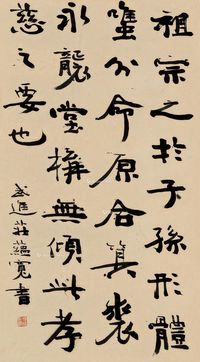 祖宗之於子孫形體
雖分命原合箕裘
永襲堂構無傾此孝
慈之要也
武進莊蘊寬書